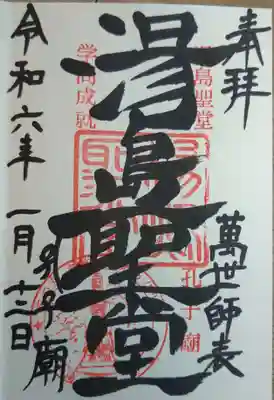 奉拝
萬世師表
湯島聖堂
湯島聖堂
孔子廟
学問成就
孔子廟
令和六年一月十三日